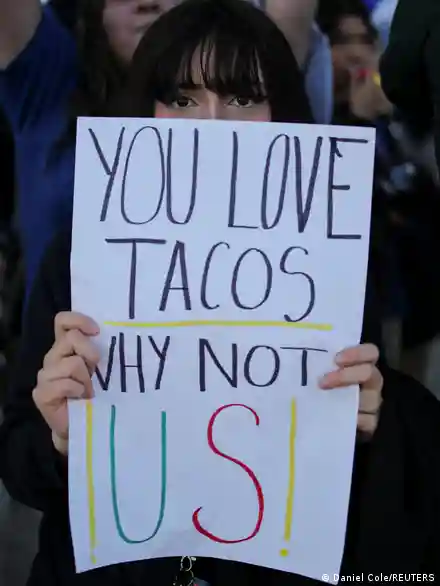 YOU LOVE
TACOS
WHY NOT
¡US!
© Daniel Cole/REUTERS